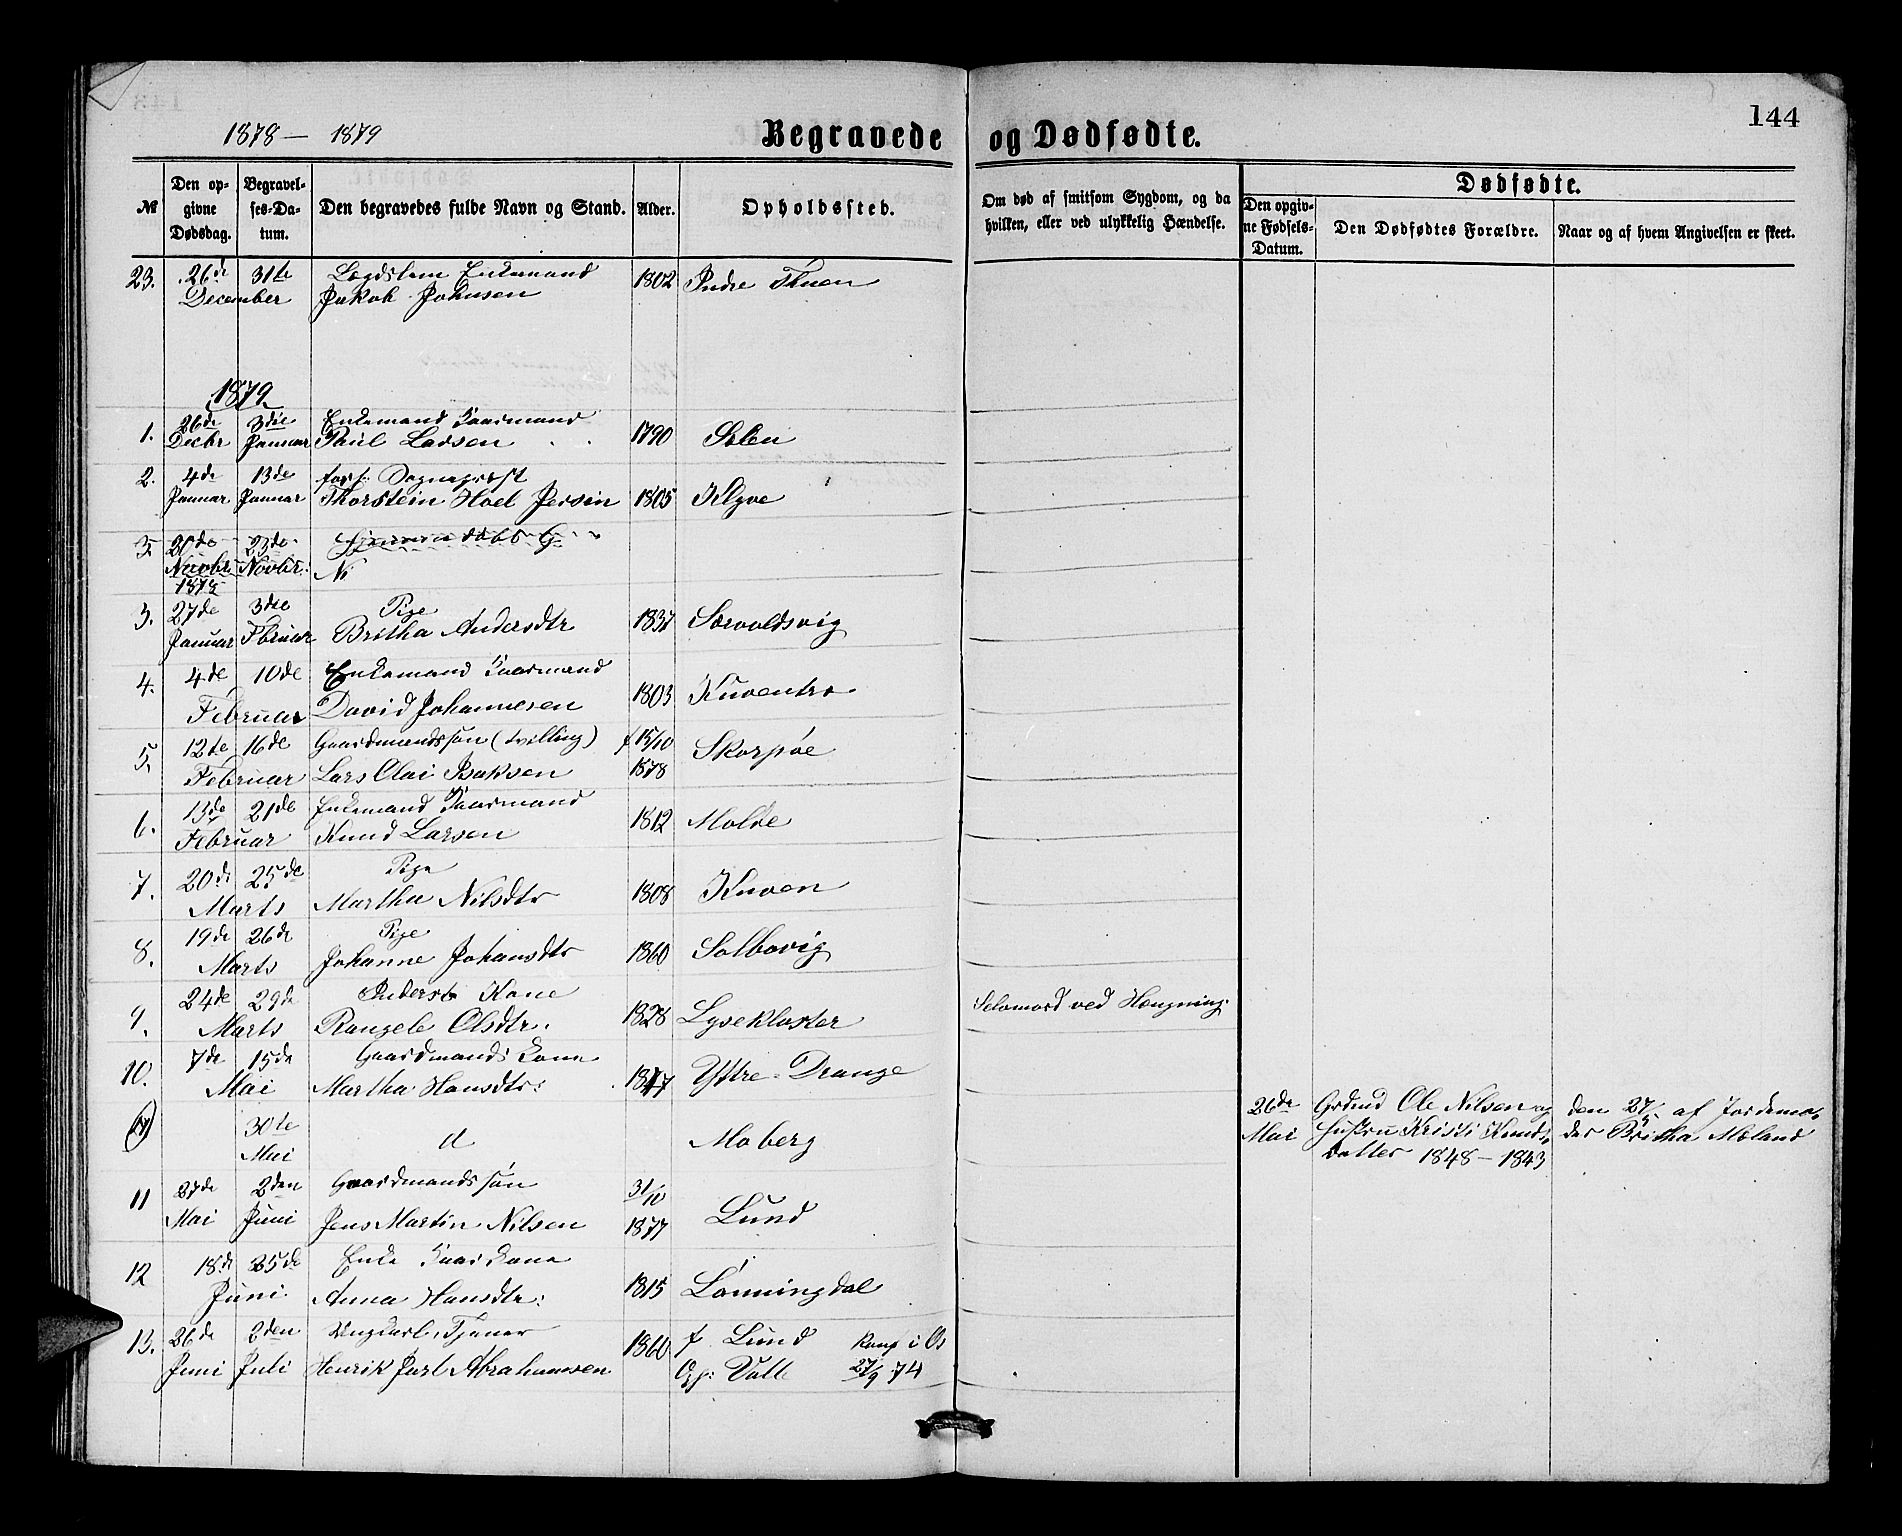 144
1878 — 1879
Begravede og Dødfødte.
№
Den opgivne Dødsdag.
Begravelses-Datum.
Den begravedes fulde Navn og Stand.
Alder.
Opholdssted.
Om død af smitsom Sygdom, og da hvilken, eller ved ulykkelig Hændelse.
Dødfødte.
Den opgivne Fødsels-Datum.
Den Dødfødtes Forældre.
Naar og af hvem Angivelsen er skeet.
23. 26de 31te Lægdslem Enkemand 1802 Indre
December Jakob Johnsen
1879
1. 26de 3die Enkemand Kaarmand
Decbr Januar Paul Larsen 1790 Solen
2. 4de 13de
Januar Januar Thorstein Hoel Jersin 1805 Klyve
3. 20de 23de
Novbr Novbr: N
1878
3. 27de 3die Pige 1837 Sørvoldsvig
Januar Fbruar Britha Andersdtr
4. 4de 10de Enkemand Kaarmand 1803 Kuventræ
Februar David Johannesen
5. 12te 16de Gaardmandssøn (tvilling) f 15/10 Skorpøe
Februar Lars Olai Isaksen 1878
6. 13de 21de Enkemand Kaarmand 1812 Molde
Februar Knud Larsen
7. 20de 25de Pige 1808 Kuven
Marts Martha Nilsdtr
8. 19de 26de Pige 1860 Solbovig
Marts Johanne Johansdtr
9. 24de 29de Inderst Kone 1828 Lysekloster Selvmord ved Hængning.
Marts Rangele Olsdtr.
10. 7de 15de Gaardmands Kone 1817 Yttre-Drange
Mai Martha Hansdtr:
30te d Moberg
Mai
26de Grdmd Ole Nilsen og den 27/5 af Jordemo-
Mai Hustru Kristi Knuds- der Britha Moland
datter 1848 — 1843
11 27de 2den Gaardmandssøn 31/10 Lund
Mai Juni Jens Martin Nilsen 1877
12 18de 25de Enke Kaarkone 1815 Lønningdal
Juni Anna Hansdtr:
13. 26de 2den Ungkarl, Tjener 1860 f Lund Konf i Os
Juni Juli Henrik Jarl Abrahamsen Op: Valle 27/9 74